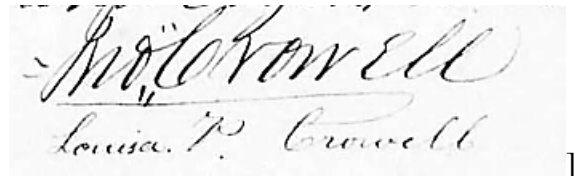 Jno. Crowell
Louisa. P. Crowell
]